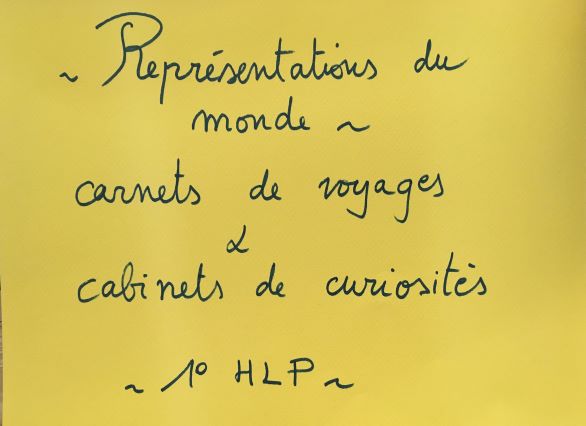 ~ Représentations du
monde ~
carnets de voyages
&
cabinets de curiosités
~ 1° HLP ~